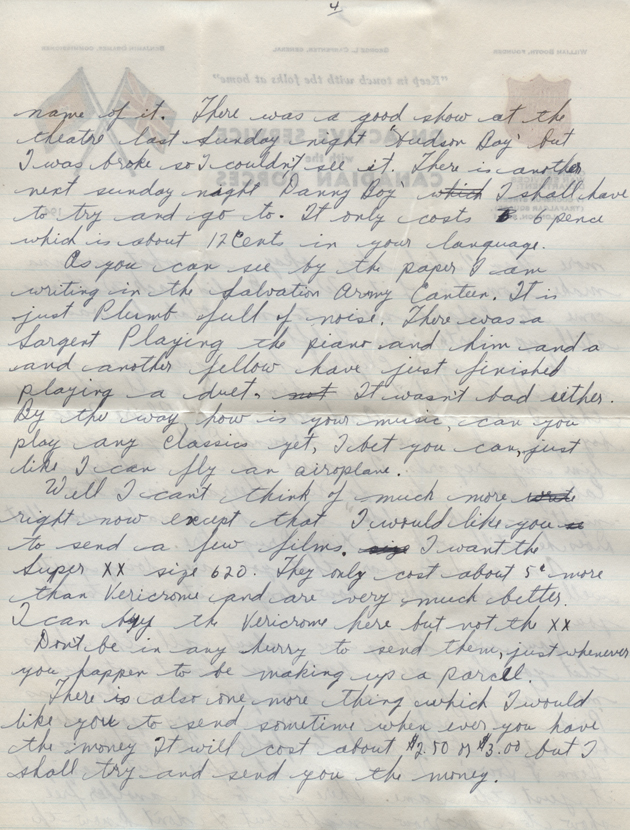 4
name of it. There was a good show at the
theatre last Sunday night "Hudson Bay" but
I was broke so I couldn't see it. There is another
next sunday night 'Danny Boy' which I shall have
to try and go to. It only costs 6 pence
which is about 12 Cents in your language.
As you can see by the paper I am
writing in the Salvation Army Canteen. It is
just Plumb full of noise. There was a
Sargent Playing the piano and him and a
and another fellow have just finished
playing a duet. not It wasn't bad either.
By the way how is your music, can you
play any Classics yet, I bet you can, just
like I can fly an airoplane.
Well I can't think of much more
right now except that I would like you
to send a few films. size I want the
Super XX size 620. They only cost about 5¢ more
than Vericrome and are very much better.
I can buy the Vericrome here but not the XX
Don't be in any hurry to send them, just whenever
you happen to be making up a parcel.
There is also one more thing which I would
like you to send sometime when ever you have
the money It will cost about $2.50 or $3.00 but I
shall try and send you the money.